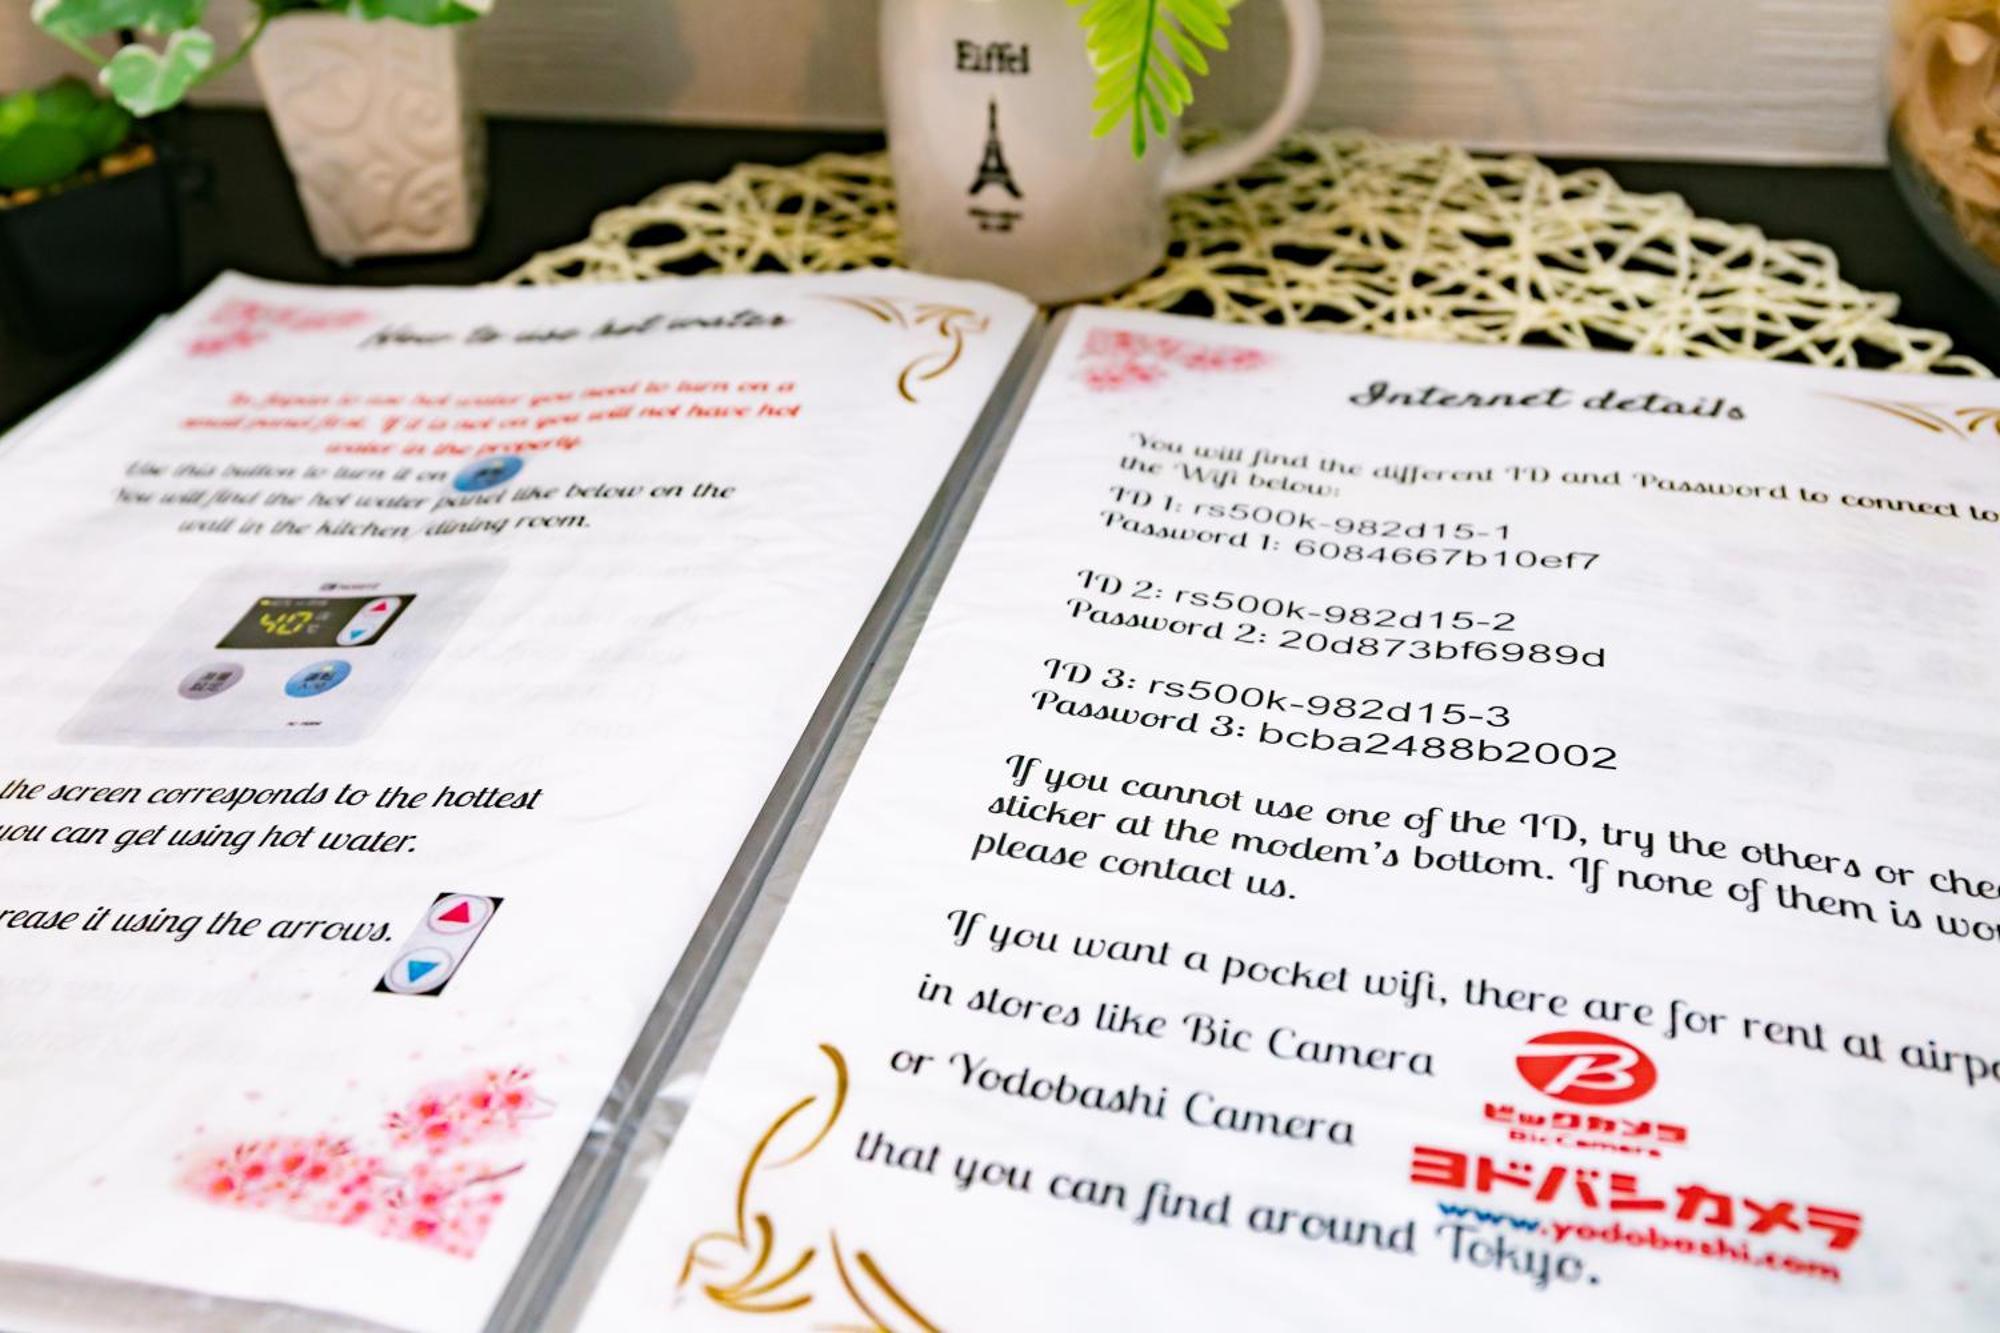 Eiffel
How to use hot water
In Japan to use hot water you need to turn on a
small panel first. If it is not on you will not have hot
water in the property.
Use this button to turn it on
You will find the hot water panel like below on the
wall in the kitchen/dining room.
40
the screen corresponds to the hottest
you can get using hot water.
rease it using the arrows.
Internet details
You will find the different ID and Password to connect to
the Wifi below:
ID 1: rs500k-982d15-1
Password 1: 6084667b10ef7
ID 2: rs500k-982d15-2
Password 2: 20d873bf6989d
ID 3: rs500k-982d15-3
Password 3: bcba2488b2002
If you cannot use one of the ID, try the others or che
sticker at the modem's bottom. If none of them is wo
please contact us.
If you want a pocket wifi, there are for rent at airpo
in stores like Bic Camera
ビックカメラ
BicCamera
or Yodobashi Camera
ヨドバシカメラ
www.yodobashi.com
that you can find around Tokyo.